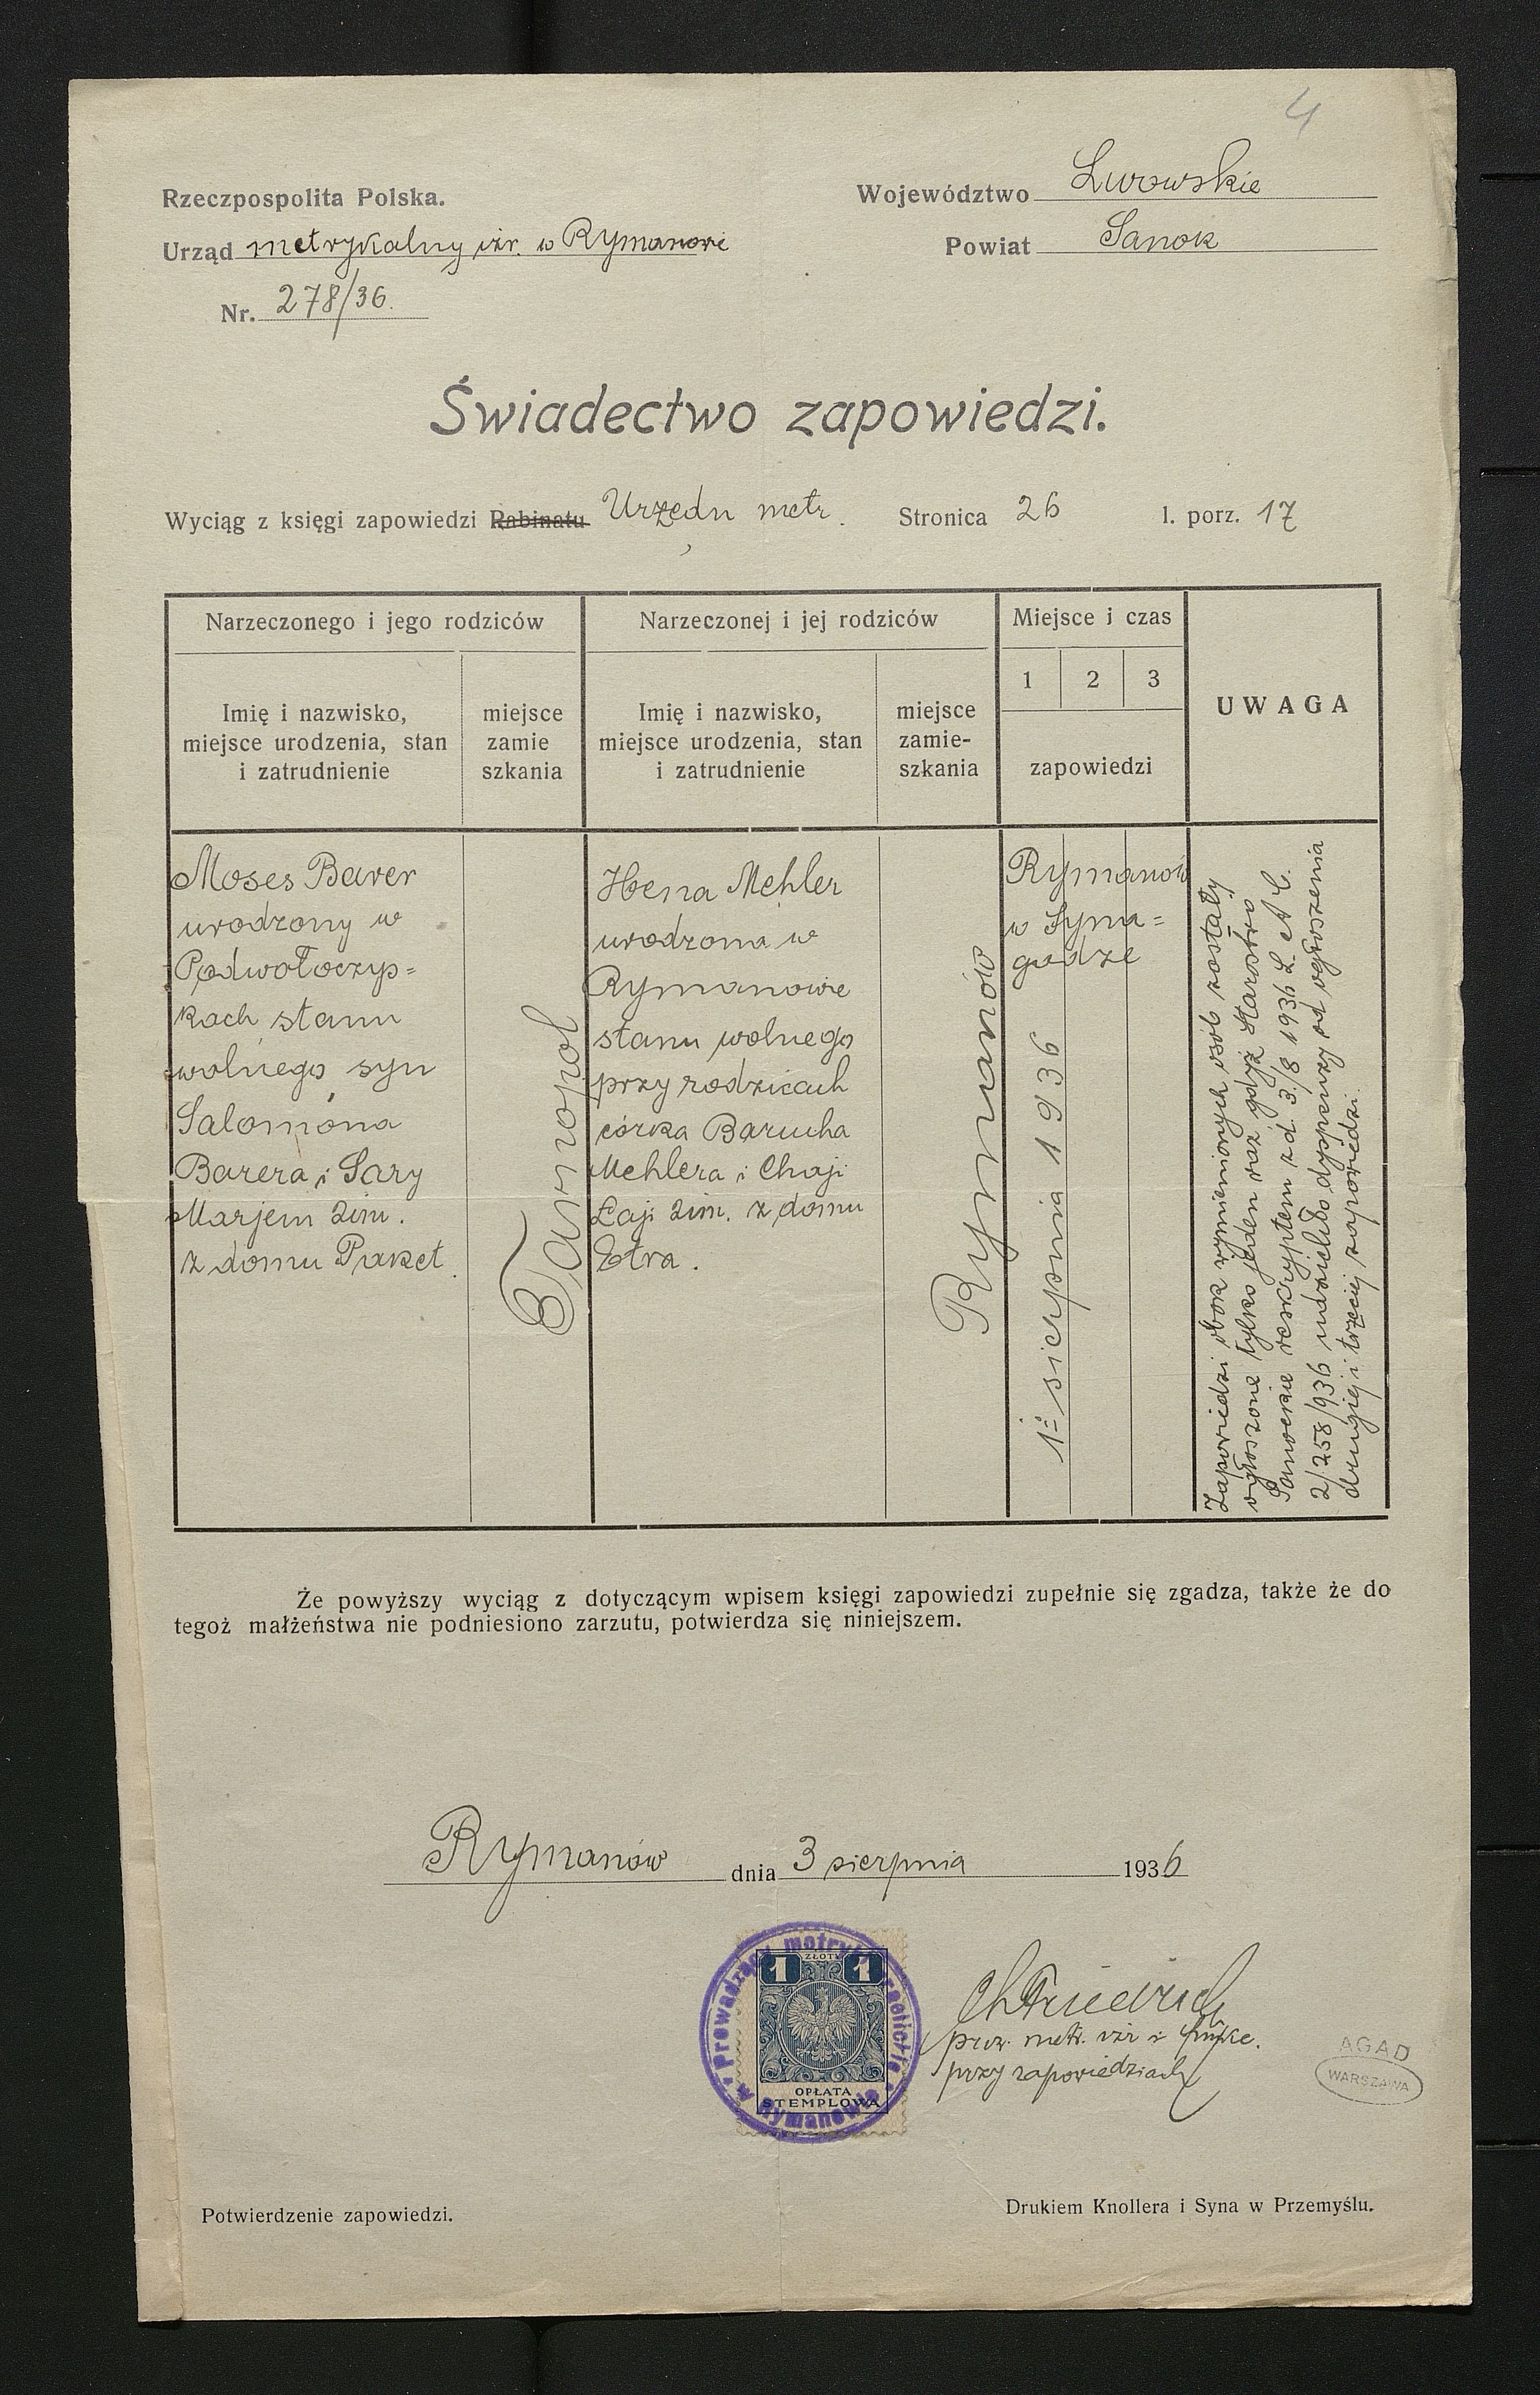 4
Rzeczpospolita Polska.
Województwo Lwowskie
Urząd metrykalny izr. w Rymanowie
Powiat Sanok
Nr. 278/36.
Świadectwo zapowiedzi.
Wyciąg z księgi zapowiedzi Rabinatu Urzędu metr. Stronica 26 l. porz. 17
Narzeczonego i jego rodziców
Imię i nazwisko,
miejsce urodzenia, stan
i zatrudnienie
miejsce
zamie
szkania
Narzeczonej i jej rodziców
Imię i nazwisko,
miejsce urodzenia, stan
i zatrudnienie
miejsce
zamie-
szkania
Miejsce i czas
1 2 3
zapowiedzi
UWAGA
Moses Barer
urodzony w
Podwołoczys=
kach stanu
wolnego syn
Salomona
Barera i Sary
Marjem 2im.
z domu Paket.
Tarnopol
Hena Mehler
urodzona w
Rymanowie
stanu wolnego
przy rodzicach
córka Barucha
Mehlera i Chaji
Łaji 2im. z domu
Etra.
Rymanów
Rymanów
w Syna=
godze
1 sierpnia 1936
Zapowiedzi obok wymienionych osób zostały
ogłoszone tylko jeden raz gdyż Starostwo
Sanockie reskryptem z d. 3/8 1936 L. A C.
2/258/936 udzieliło dyspenzy od ogłoszenia
drugiej i trzeciej zapowiedzi.
Że powyższy wyciąg z dotyczącym wpisem księgi zapowiedzi zupełnie się zgadza, także że do
tegoż małżeństwa nie podniesiono zarzutu, potwierdza się niniejszem.
Rymanów dnia 3 sierpnia 1936
Prowadzący metryki izraelickie
w Rymanowie
1 ZŁOTY 1
OPŁATA
STEMPLOWA
Ch Friedrich
prow. metr. izr i funkc.
przy zapowiedziach
AGAD
WARSZAWA
Potwierdzenie zapowiedzi.
Drukiem Knollera i Syna w Przemyślu.